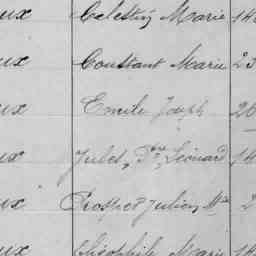 ux Célestin Marie 14
ux Constant Marie 23
ux Emile Joseph 26
ux Jules, Pre, Léonard 14
ux Prosper Julien Mie 2
ux Théophile Marie 14